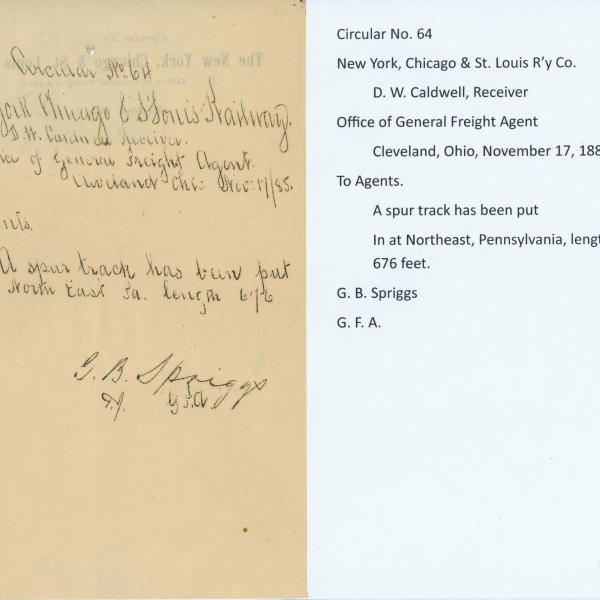 Circular No. 64
York Chicago & St Louis Railway.
D. W. Caldwell Receiver.
ice of General Freight Agent.
Cleveland Ohio Nov. 17/85.
nts.
A spur track has been put
North East Pa. length 676
G. B. Spriggs
G.F.A.
Circular No.
The New York, Chicago & St. Louis
Circular No. 64
New York, Chicago & St. Louis R’y Co.
D. W. Caldwell, Receiver
Office of General Freight Agent
Cleveland, Ohio, November 17, 188
To Agents.
A spur track has been put
In at Northeast, Pennsylvania, lengt
676 feet.
G. B. Spriggs
G. F. A.